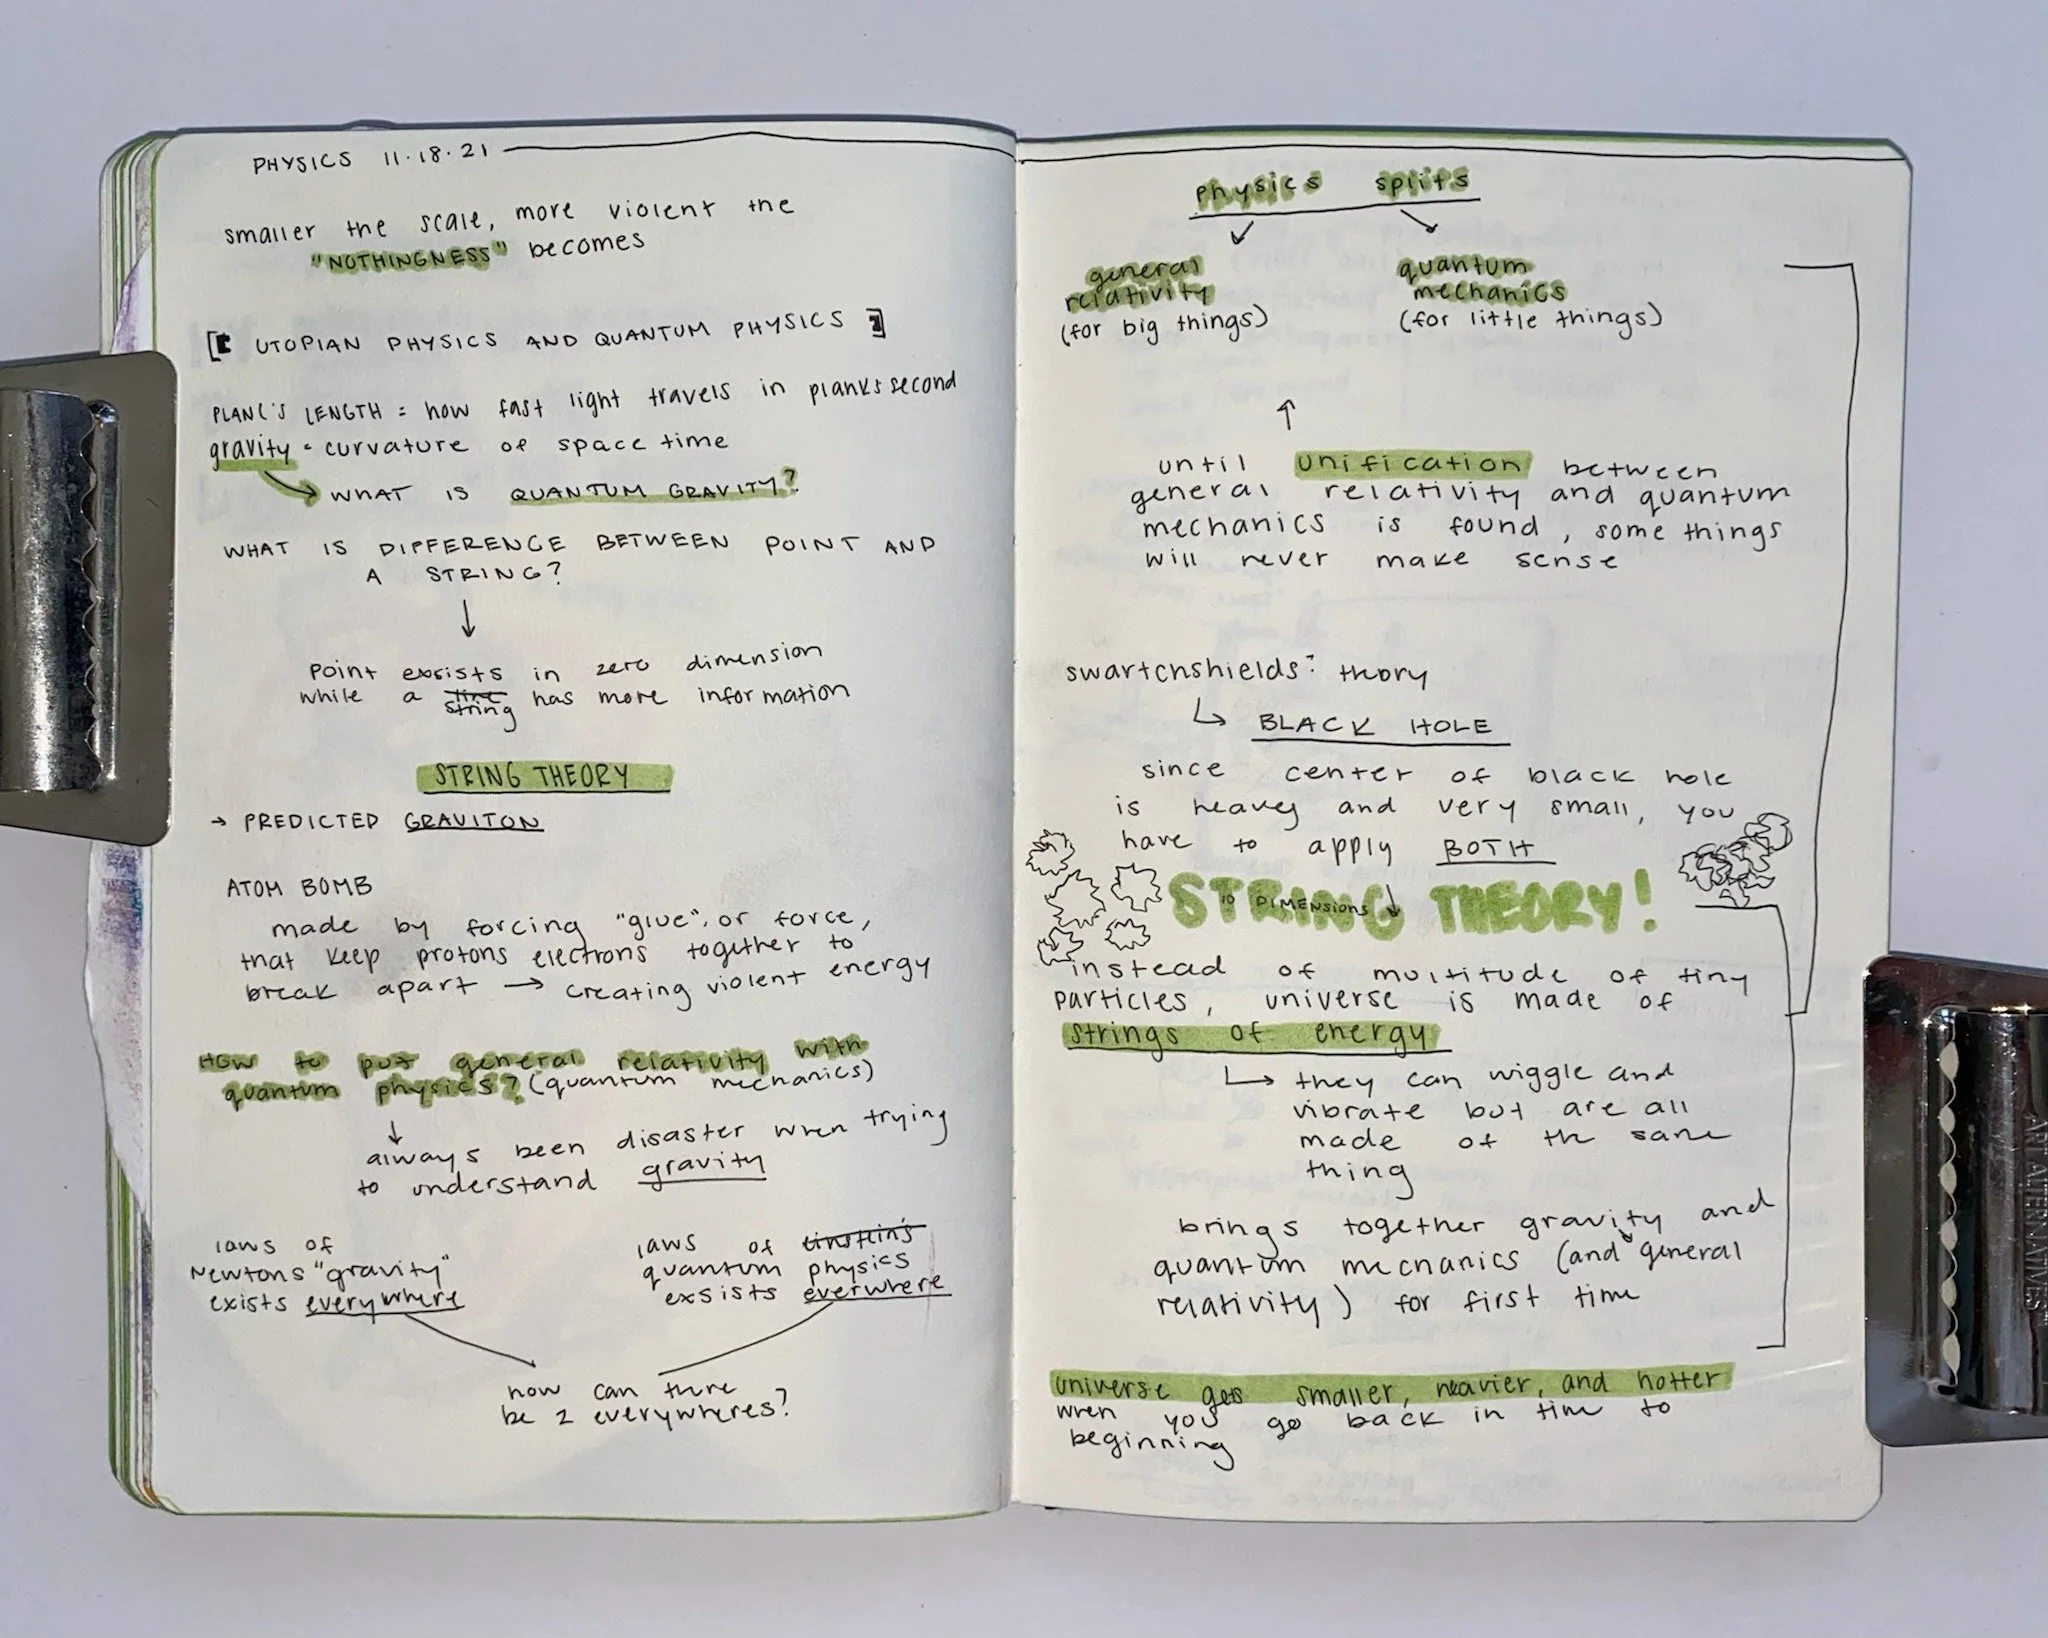 PHYSICS 11.18.21
smaller the scale, more violent the
"NOTHINGNESS" becomes
[ UTOPIAN PHYSICS AND QUANTUM PHYSICS ]
PLANC'S LENGTH = how fast light travels in planks second
gravity = curvature of space time
WHAT IS QUANTUM GRAVITY?
WHAT IS DIFFERENCE BETWEEN POINT AND
A STRING?
↓
point exsists in zero dimension
while a line has more information
string
STRING THEORY
→ PREDICTED GRAVITON
ATOM BOMB
made by forcing "glue", or force,
that keep protons electrons together to
break apart → creating violent energy
HOW to put general relativity with
quantum physics? (quantum mechanics)
↓
always been disaster when trying
to understand gravity
laws of
Newtons "gravity"
exists everywhere
laws of einstein's
quantum physics
exsists everwhere
how can there
be 2 everywheres?
physics splits
general
relativity
(for big things)
quantum
mechanics
(for little things)
↑
until unification between
general relativity and quantum
mechanics is found, some things
will never make sense
swartchshields: theory
↳ BLACK HOLE
since center of black hole
is heavey and very small, you
have to apply BOTH
STRING THEORY!
10 DIMENSIONS
instead of multitude of tiny
particles, universe is made of
strings of energy
↳ they can wiggle and
vibrate but are all
made of the same
thing
brings together gravity and
quantum mechanics (and general
relativity) for first time
universe gets smaller, heavier, and hotter
when you go back in time to
beginning
ART ALTERNATIVES